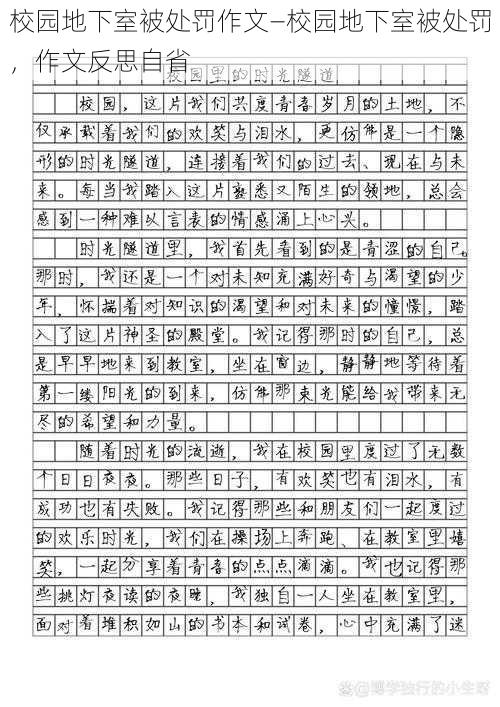 校园地下室被处罚作文–校园地下室被处罚
，作文反思自省
校园里的时光隧道
校园，这片我们共度青春岁月的土地，不
仅承载着我们的欢笑与泪水，更仿佛是一个隐
形的时光隧道，连接着我们的过去、现在与未
来。每当我踏入这片熟悉又陌生的领地，总会
感到一种难以言表的情感涌上心头。
时光隧道里，我首先看到的是青涩的自己。
那时，我还是一个对未知充满好奇与渴望的少
年，怀揣着对知识的渴望和对未来的憧憬，踏
入了这片神圣的殿堂。我记得那时的自己，总
是早早地来到教室，坐在窗边，静静地等待着
第一缕阳光的到来，仿佛那束光能给我带来无
尽的希望和力量。
随着时光的流逝，我在校园里度过了无数
个日日夜夜。那些日子，有欢笑也有泪水，有
成功也有失败。我记得那些和朋友们一起度过
的欢乐时光，我们在操场上奔跑、在教室里嬉
笑，一起分享着青春的点点滴滴。我也记得那
些挑灯夜读的夜晚，我独自一人坐在教室里，
面对着堆积如山的书本和试卷，心中充满了迷
@博学独行的小生呀